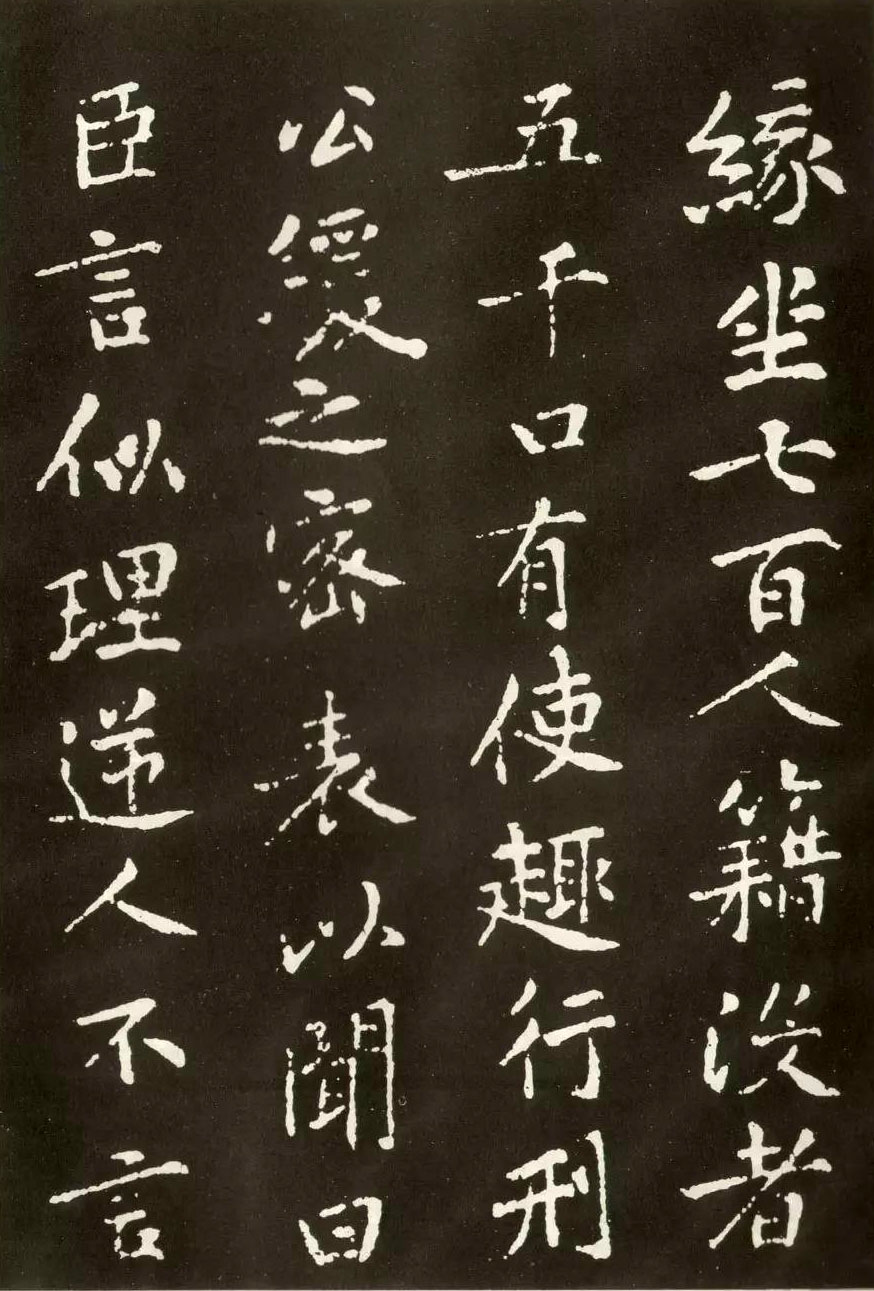 緣坐七百人籍没者
五千口有使趣行刑
公緩之密表以聞曰
臣言似理逆人不言